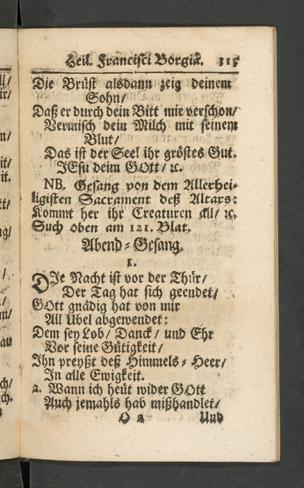 Heil. Francisci Borgiæ. 315
Die Brüst alsdann zeig deinem
Sohn/
Daß er durch dein Bitt mir verschon/
Vermisch dein Milch mit seinem
Blut/
Das ist der Seel ihr gröstes Gut.
JEsu deim GOtt/ ꝛc.
NB. Gesang von dem Allerhei-
ligisten Sacrament deß Altars:
Kommt her ihr Creaturen all/ ꝛc.
Such oben am 121. Blat.
Abend-Gesang.
1.
DIe Nacht ist vor der Thür/
Der Tag hat sich geendet/
GOtt gnädig hat von mir
All Ubel abgewendet:
Dem sey Lob/ Danck/ und Ehr
Vor seine Gütigkeit/
Ihn preyßt deß Himmels-Heer/
In alle Ewigkeit.
2. Wann ich heut wider GOtt
Auch jemahls hab mißhandlet/
O 2 Und